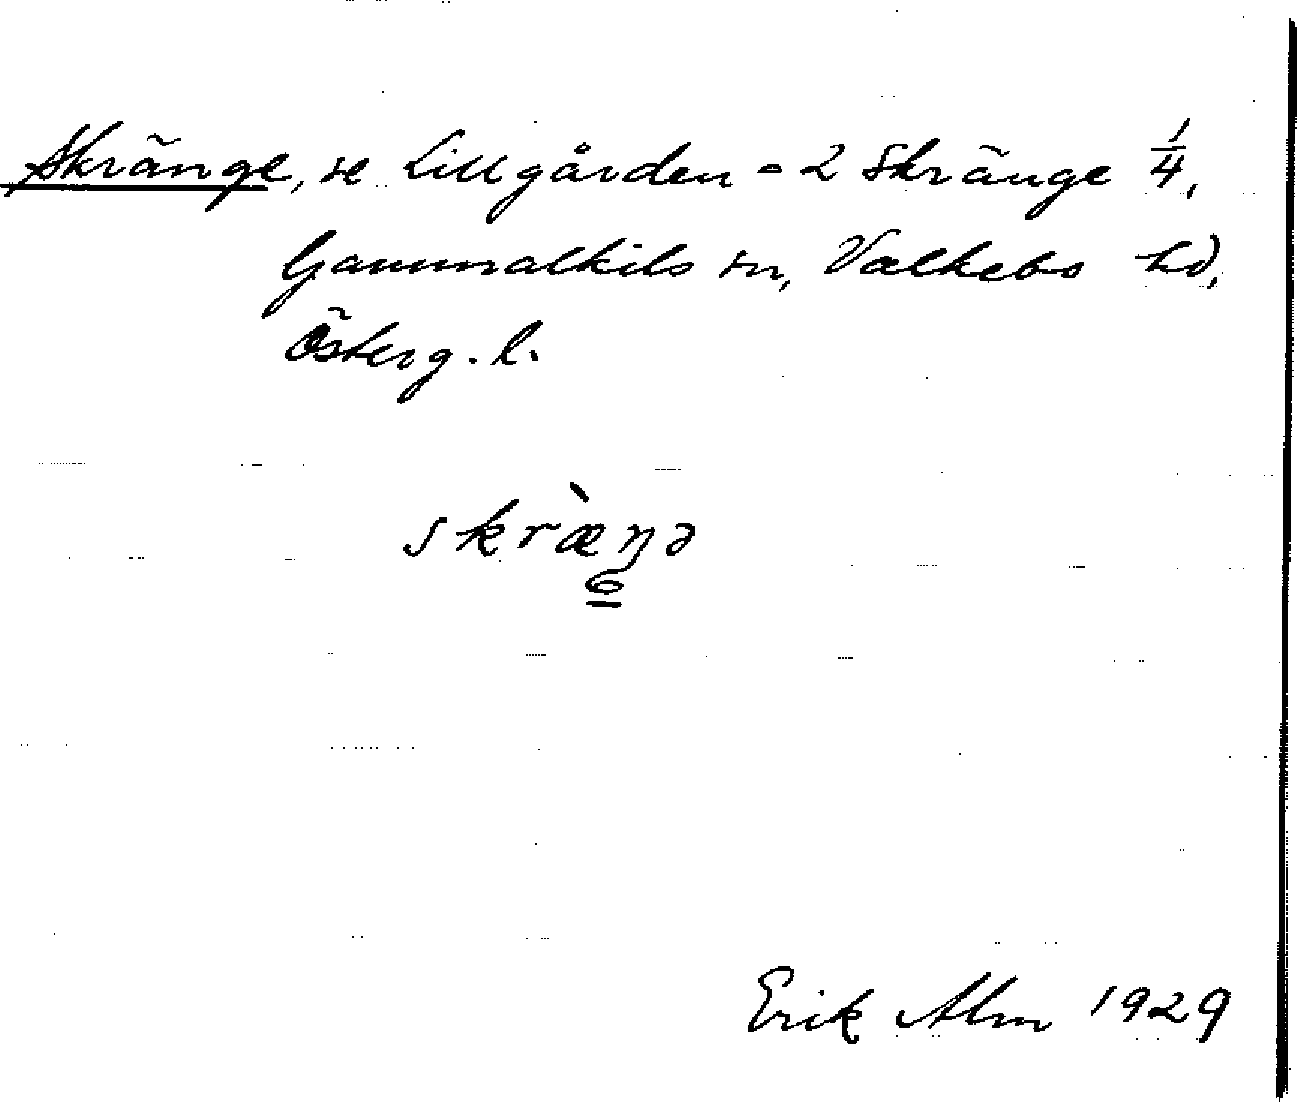 Skränge, se Lillgården = 2 Skränge 1/4,
Gammalkils sn, Valkebo hd,
Österg. l.
skræ̀ŋə
Erik Alm 1929